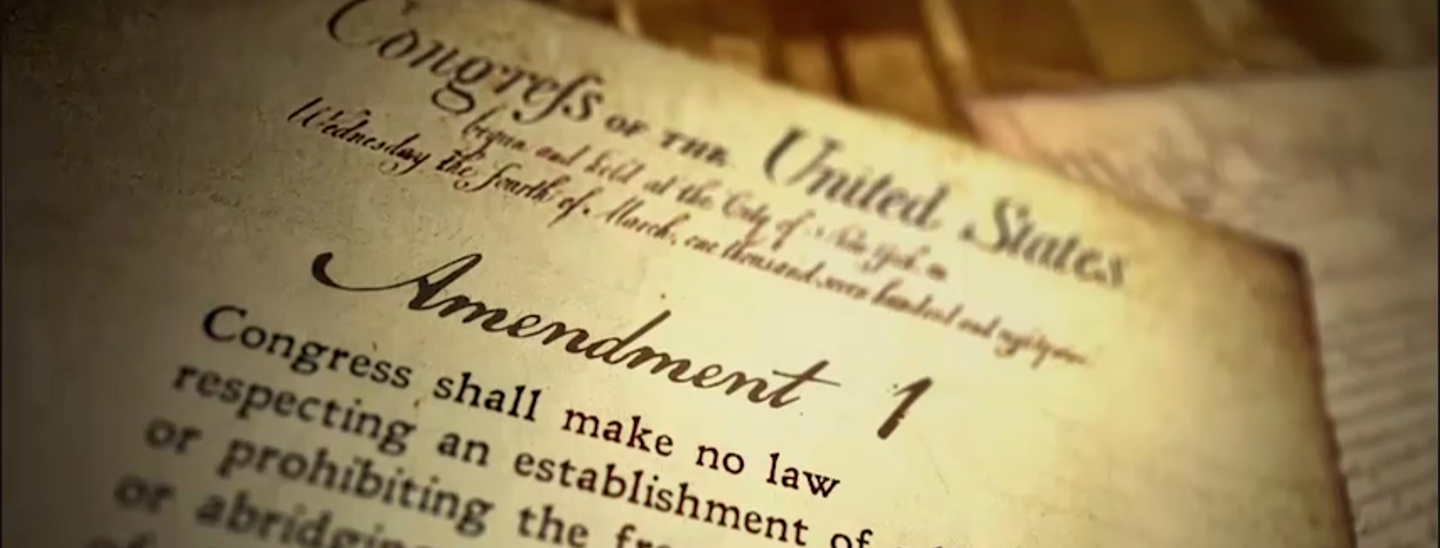 Congreſs OF THE United States
begun and held at the City of New York on
Wednesday the fourth of March, one thousand seven hundred and eighty nine
Amendment 1
Congress shall make no law
respecting an establishment of
or prohibiting the
or abridging
of